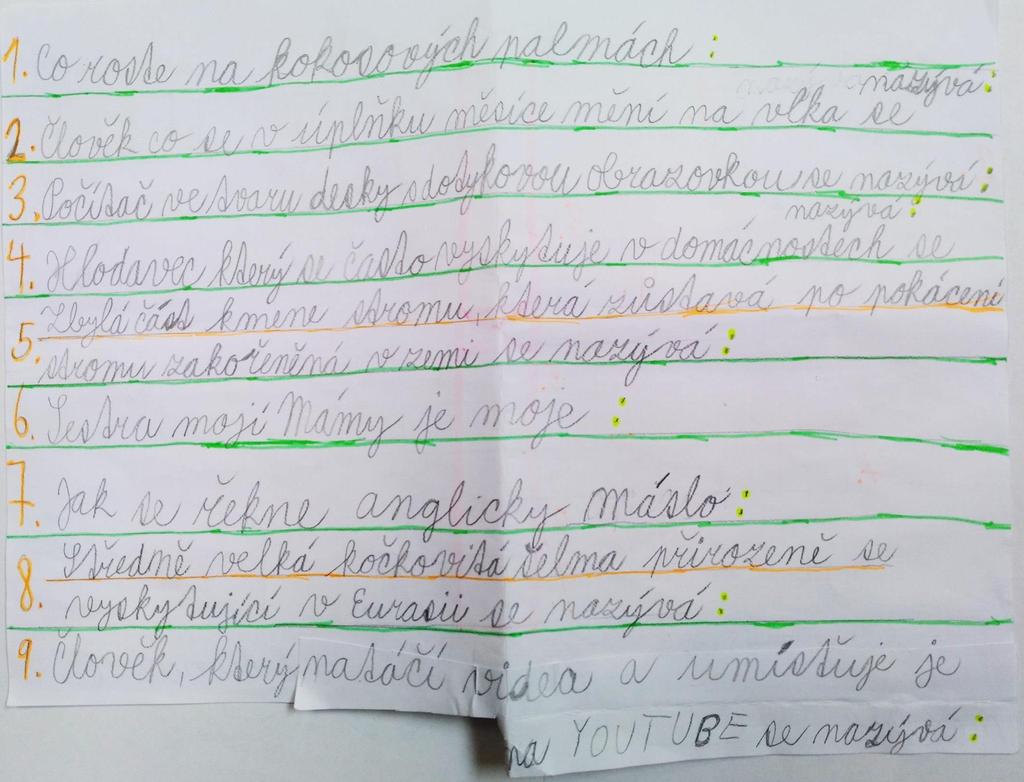 1. Co roste na kokosových palmách :
nazývá:
2. Člověk co se v úplňku měsíce mění na vlka se
3. Počítač ve tvaru desky s dotykovou obrazovkou se nazývá:
nazývá:
4. Hlodavec který se často vyskytuje v domácnostech se
Zbylá část kmene stromu, která zůstavá po pokácení
5. stromu zakořeněná v zemi se nazývá:
6. Sestra mojí Mámy je moje :
7. Jak se řekne anglicky máslo:
Středně velká kočkovitá šelma přirozeně se
8. vyskytující v Eurasii se nazývá:
9. Člověk, který natáčí videa a umisťuje je
na YOUTUBE se nazývá: